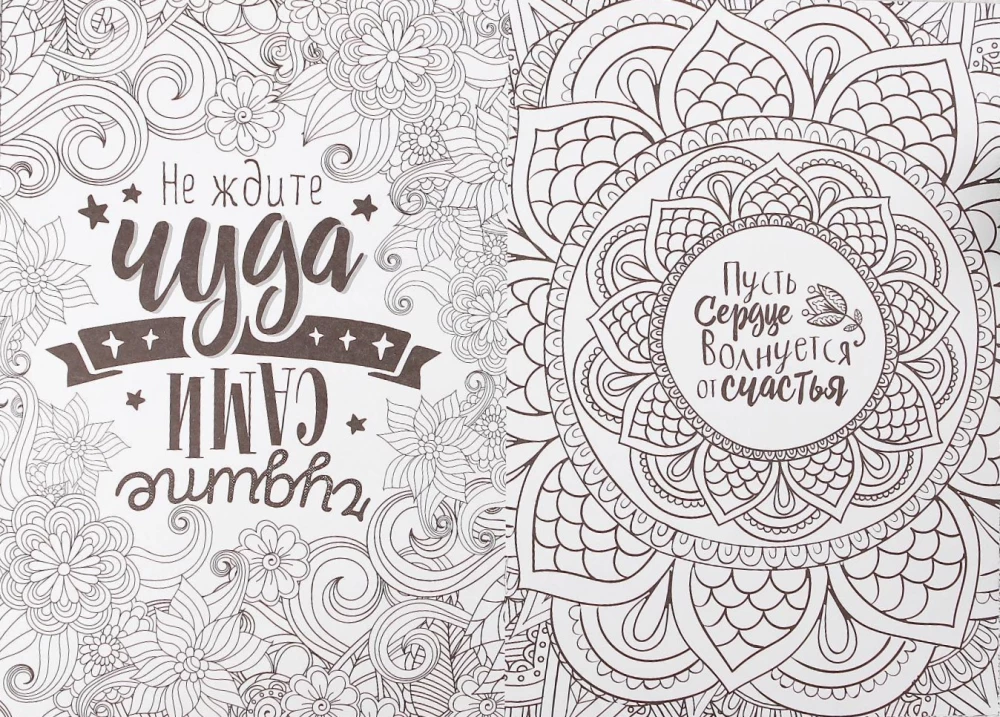 Не ждите
чуда
чудите
САМИ
Пусть
Сердце
Волнуется
от счастья